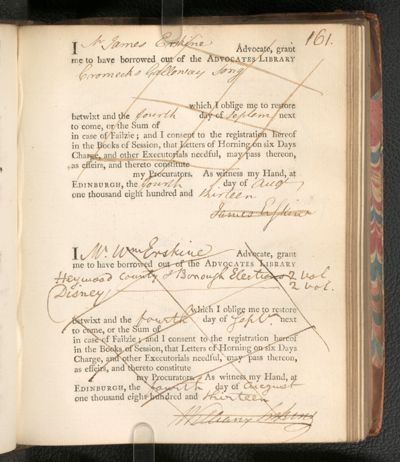 161.
I Mr James Erskine Advocate, grant
me to have borrowed out of the ADVOCATES LIBRARY
Cromecks Galloway Song
which I oblige me to restore
betwixt and the fourth day of Septem next
to come, or the Sum of
in case of Failzie; and I consent to the registration hereof
in the Books of Session, that Letters of Horning on six Days
Charge, and other Executorials needful, may pass thereon,
as effeirs, and thereto constitute
my Procurators. As witness my Hand, at
EDINBURGH, the fourth day of Augt
one thousand eight hundred and thirteen
James Erskine
I Mr Wm Erskine Advocate, grant
me to have borrowed out of the ADVOCATES LIBRARY
Heywood County & Borough Elections 2 vol
Disney 2 vol.
which I oblige me to restore
betwixt and the fourth day of Sepr next
to come, or the Sum of
in case of Failzie; and I consent to the registration hereof
in the Books of Session, that Letters of Horning on six Days
Charge, and other Executorials needful, may pass thereon,
as effeirs, and thereto constitute
my Procurators. As witness my Hand, at
EDINBURGH, the fourth day of August
one thousand eight hundred and thirteen
William Erskine